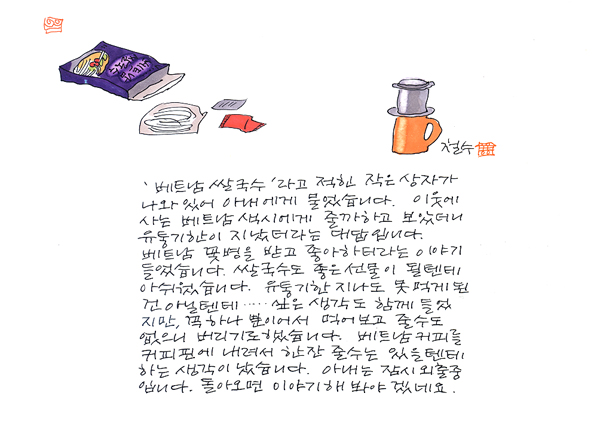 철수
'베트남 쌀국수'라고 적힌 작은 상자가
나와 있어 아내에게 물었습니다. 이웃에
사는 베트남 색시에게 줄까하고 보았더니
유통기한이 지났더라는 대답입니다.
베트남 떡병을 받고 좋아하더라는 이야기
들었습니다. 쌀국수도 좋은 선물이 될텐데
아쉬웠습니다. 유통기한 지나도 못 먹게 된
건 아닐텐데..... 싶은 생각도 함께 들었
지만, 꼭 하나 뿐이어서 먹어보고 줄수도
없으니 버리기로했습니다. 베트남 커피를
커피핀에 내려서 한잔 줄수는 있을텐데
하는 생각이 났습니다. 아내는 잠시 외출중
입니다. 돌아오면 이야기해 봐야 겠네요.